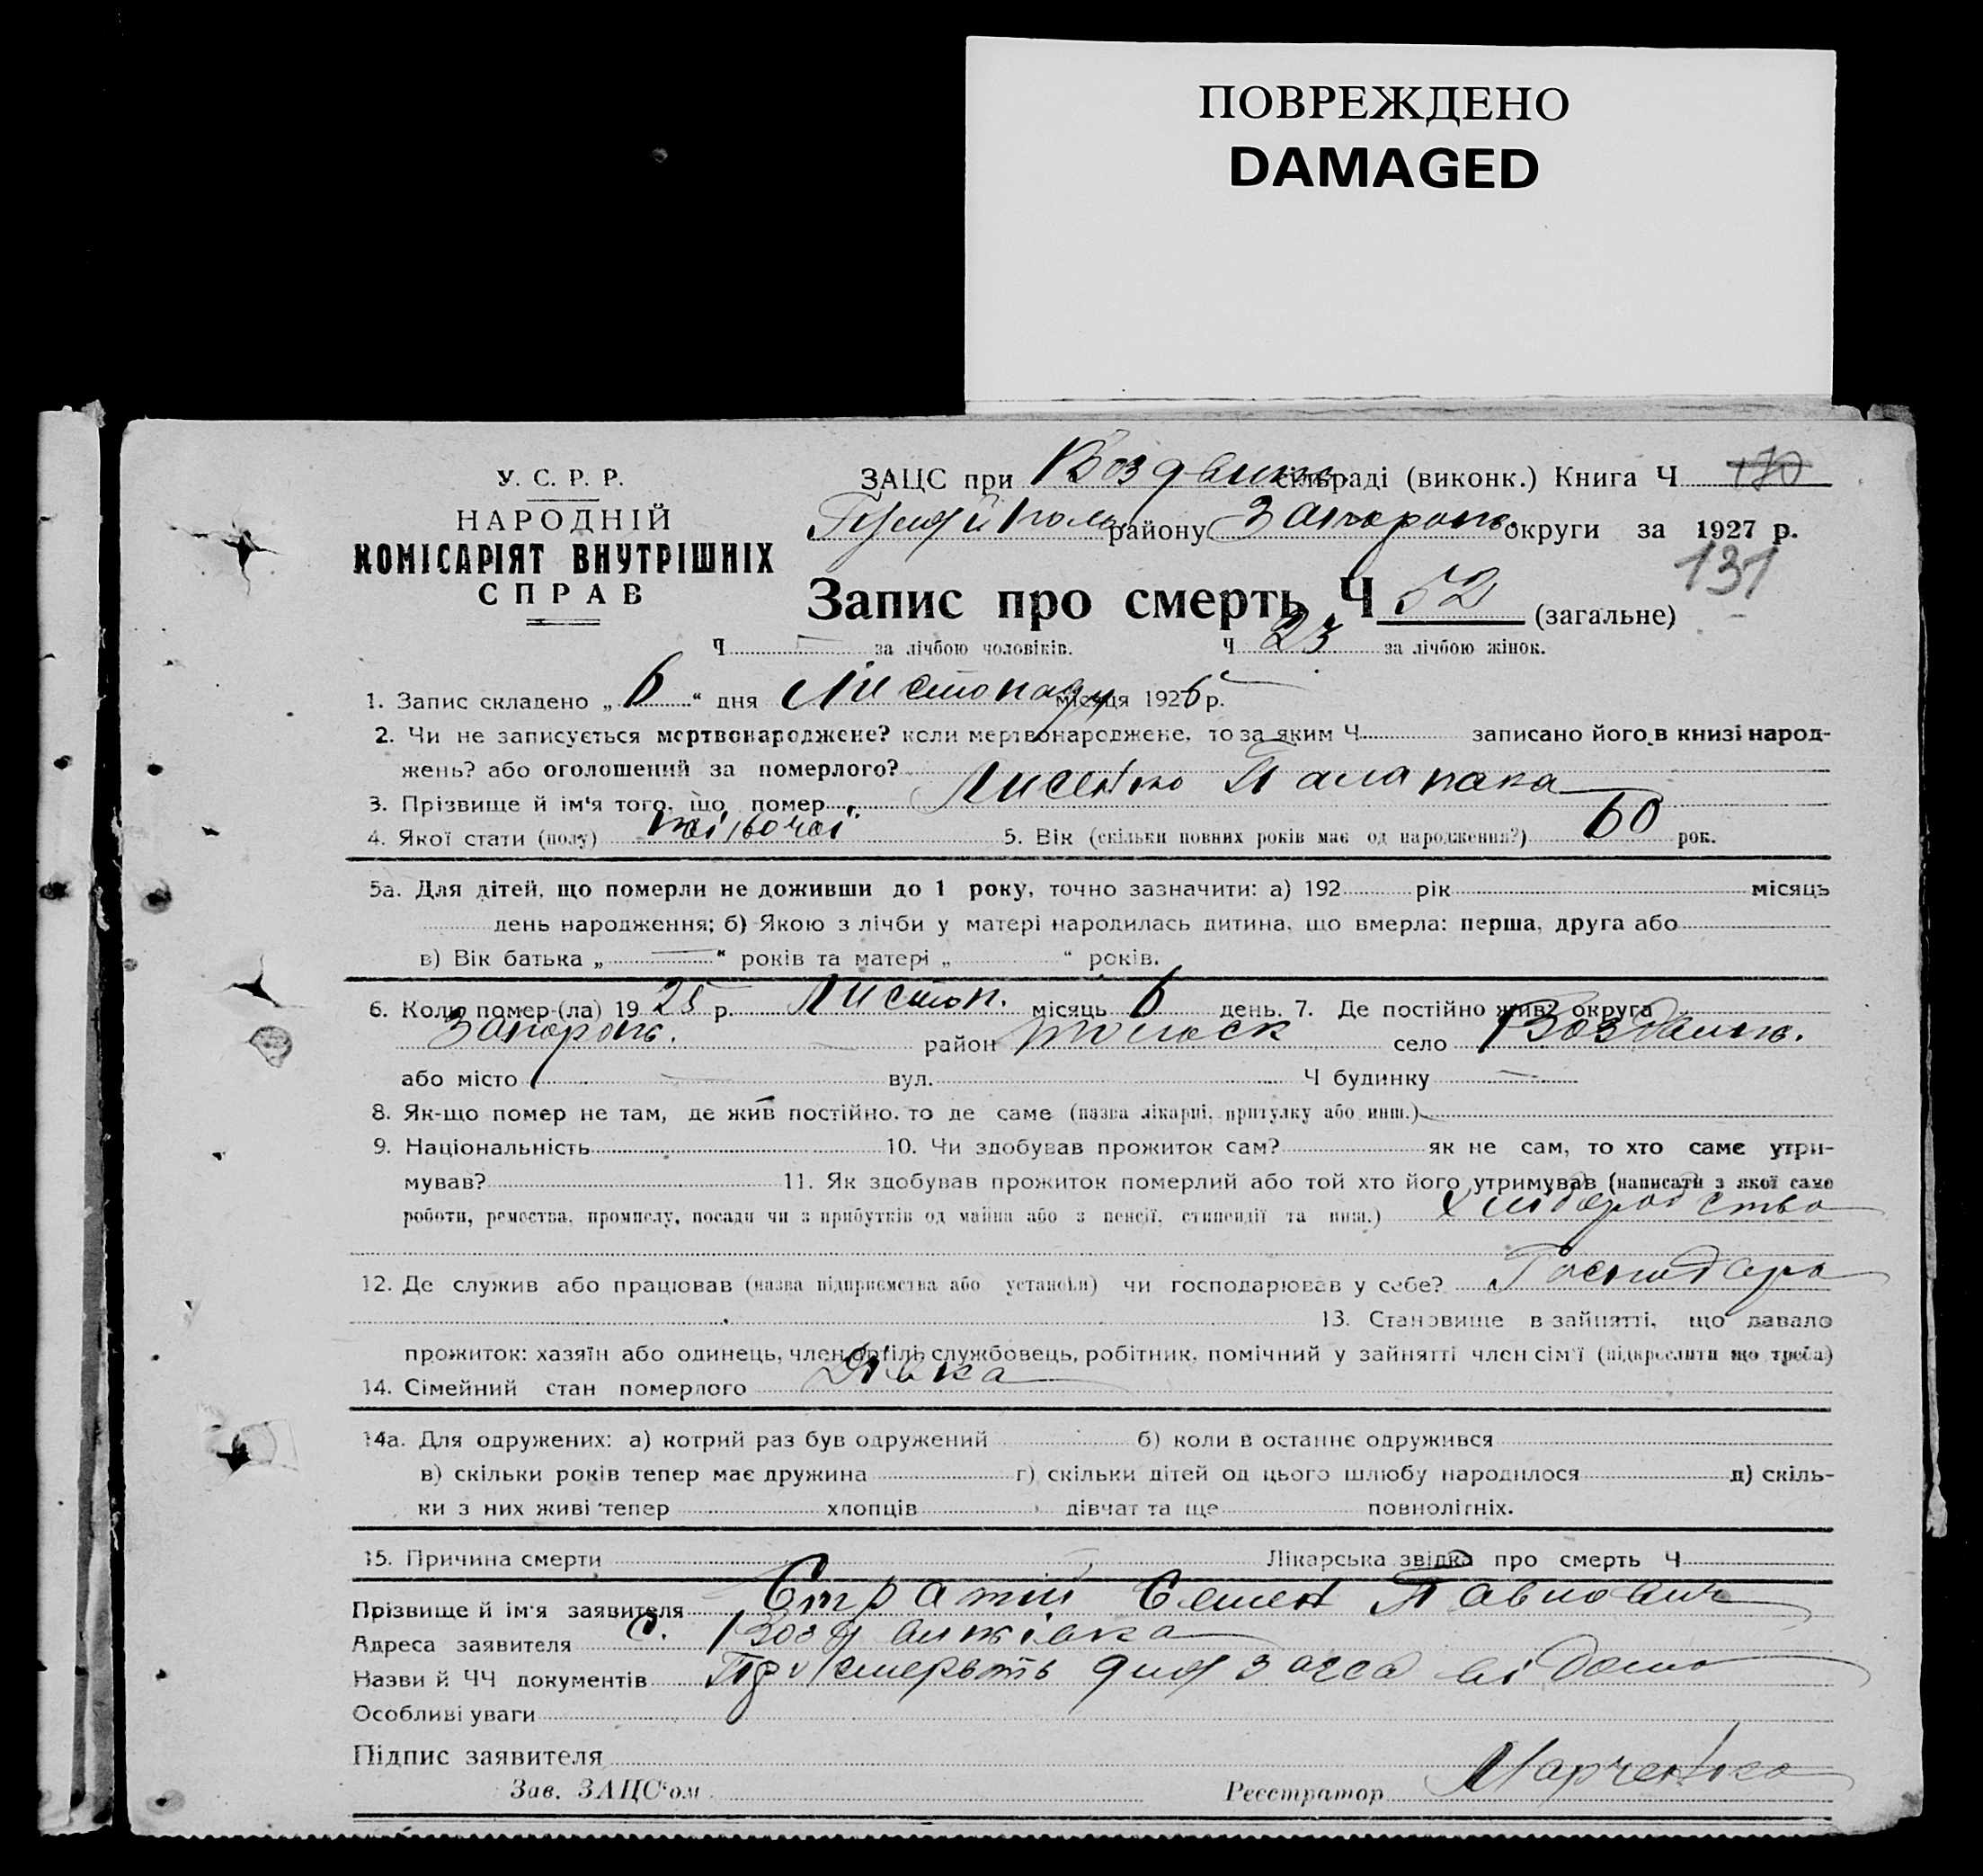 ПОВРЕЖДЕНО
DAMAGED
У. С. Р. Р.
НАРОДНІЙ
КОМІСАРІЯТ ВНУТРІШНІХ
СПРАВ
ЗАЦС при Воздвижів. сільраді (виконк.) Книга Ч 130
району Запорож. округи за 1927 р.
131
Запис про смерть Ч 52 (загальне)
Ч — за лічбою чоловіків. Ч 23 за лічбою жінок.
1. Запис складено „ 6 “ дня Листопаду місяця 1926 р.
2. Чи не записується мертвонароджене? коли мертвонароджене, то за яким Ч записано його в книзі народ-
жень? або оголошений за померлого?
3. Прізвище й ім'я того, що помер Лисенко Палажка
4. Якої стати (полу) жіночої 5. Вік (скільки повних років має од народження?) 60 рок.
5а. Для дітей, що померли не доживши до 1 року, точно зазначити: а) 192 рік місяць
день народження; б) Якою з лічби у матері народилась дитина, що вмерла: перша, друга або
в) Вік батька „ — “ років та матері „ “ років.
6. Коли помер-(ла) 19 25 р. Листоп. місяць 6 день. 7. Де постійно жив: округа
Запорож. район село Воздвиж.
або місто — вул. Ч будинку —
8. Як-що помер не там, де жив постійно, то де саме (назва лікарні, притулку або инш.)
9. Національність 10. Чи здобував прожиток сам? як не сам, то хто саме утри-
мував? 11. Як здобував прожиток померлий або той хто його утримував (написати з якої саме
роботи, ремества, промислу, посади чи з прибутків од майна або з пенсії, стипендії та инш.) хлібородство
12. Де служив або працював (назва підприємства або установи) чи господарював у себе? Господарь
13. Становище в зайнятті, що давало
прожиток: хазяїн або одинець, член артілі, службовець, робітник, помічний у зайнятті член сім'ї (підкреслити що треба)
14. Сімейний стан померлого Дівка
14а. Для одружених: а) котрий раз був одружений б) коли в останнє одружився
в) скільки років тепер має дружина г) скільки дітей од цього шлюбу народилося д) скіль-
ки з них живі тепер хлопців дівчат та ще повнолітніх.
15. Причина смерти Лікарська звідка про смерть Ч
Прізвище й ім'я заявителя Стратій Семен Павлович
Адреса заявителя с. Воздвижівка
Назви й ЧЧ документів
Особливі уваги
Підпис заявителя
Зав. ЗАЦС'ом Реєстратор Марченко